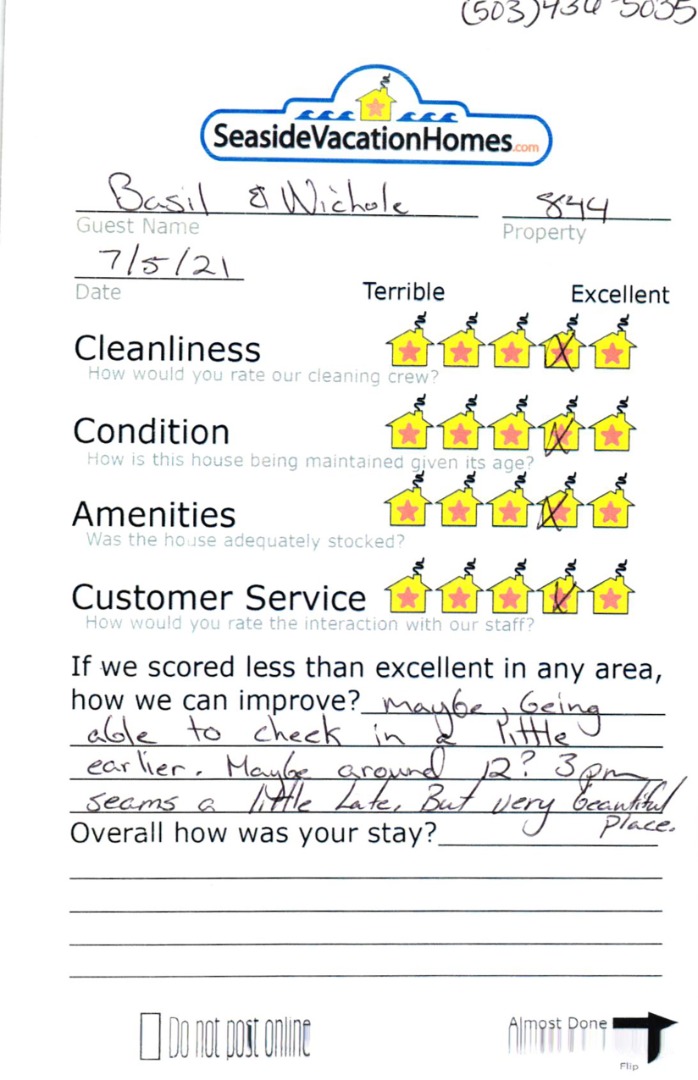 (503)436-5035
SeasideVacationHomes.com
Basil & Nichole 844
Guest Name Property
7/5/21
Date Terrible Excellent
Cleanliness
How would you rate our cleaning crew?
Condition
How is this house being maintained given its age?
Amenities
Was the house adequately stocked?
Customer Service
How would you rate the interaction with our staff?
If we scored less than excellent in any area,
how we can improve? Maybe, being
able to check in a little
earlier. Maybe around 12? 3pm
seams a little late. But very beautiful
place.
Overall how was your stay?
Do not post online
Almost Done
Flip